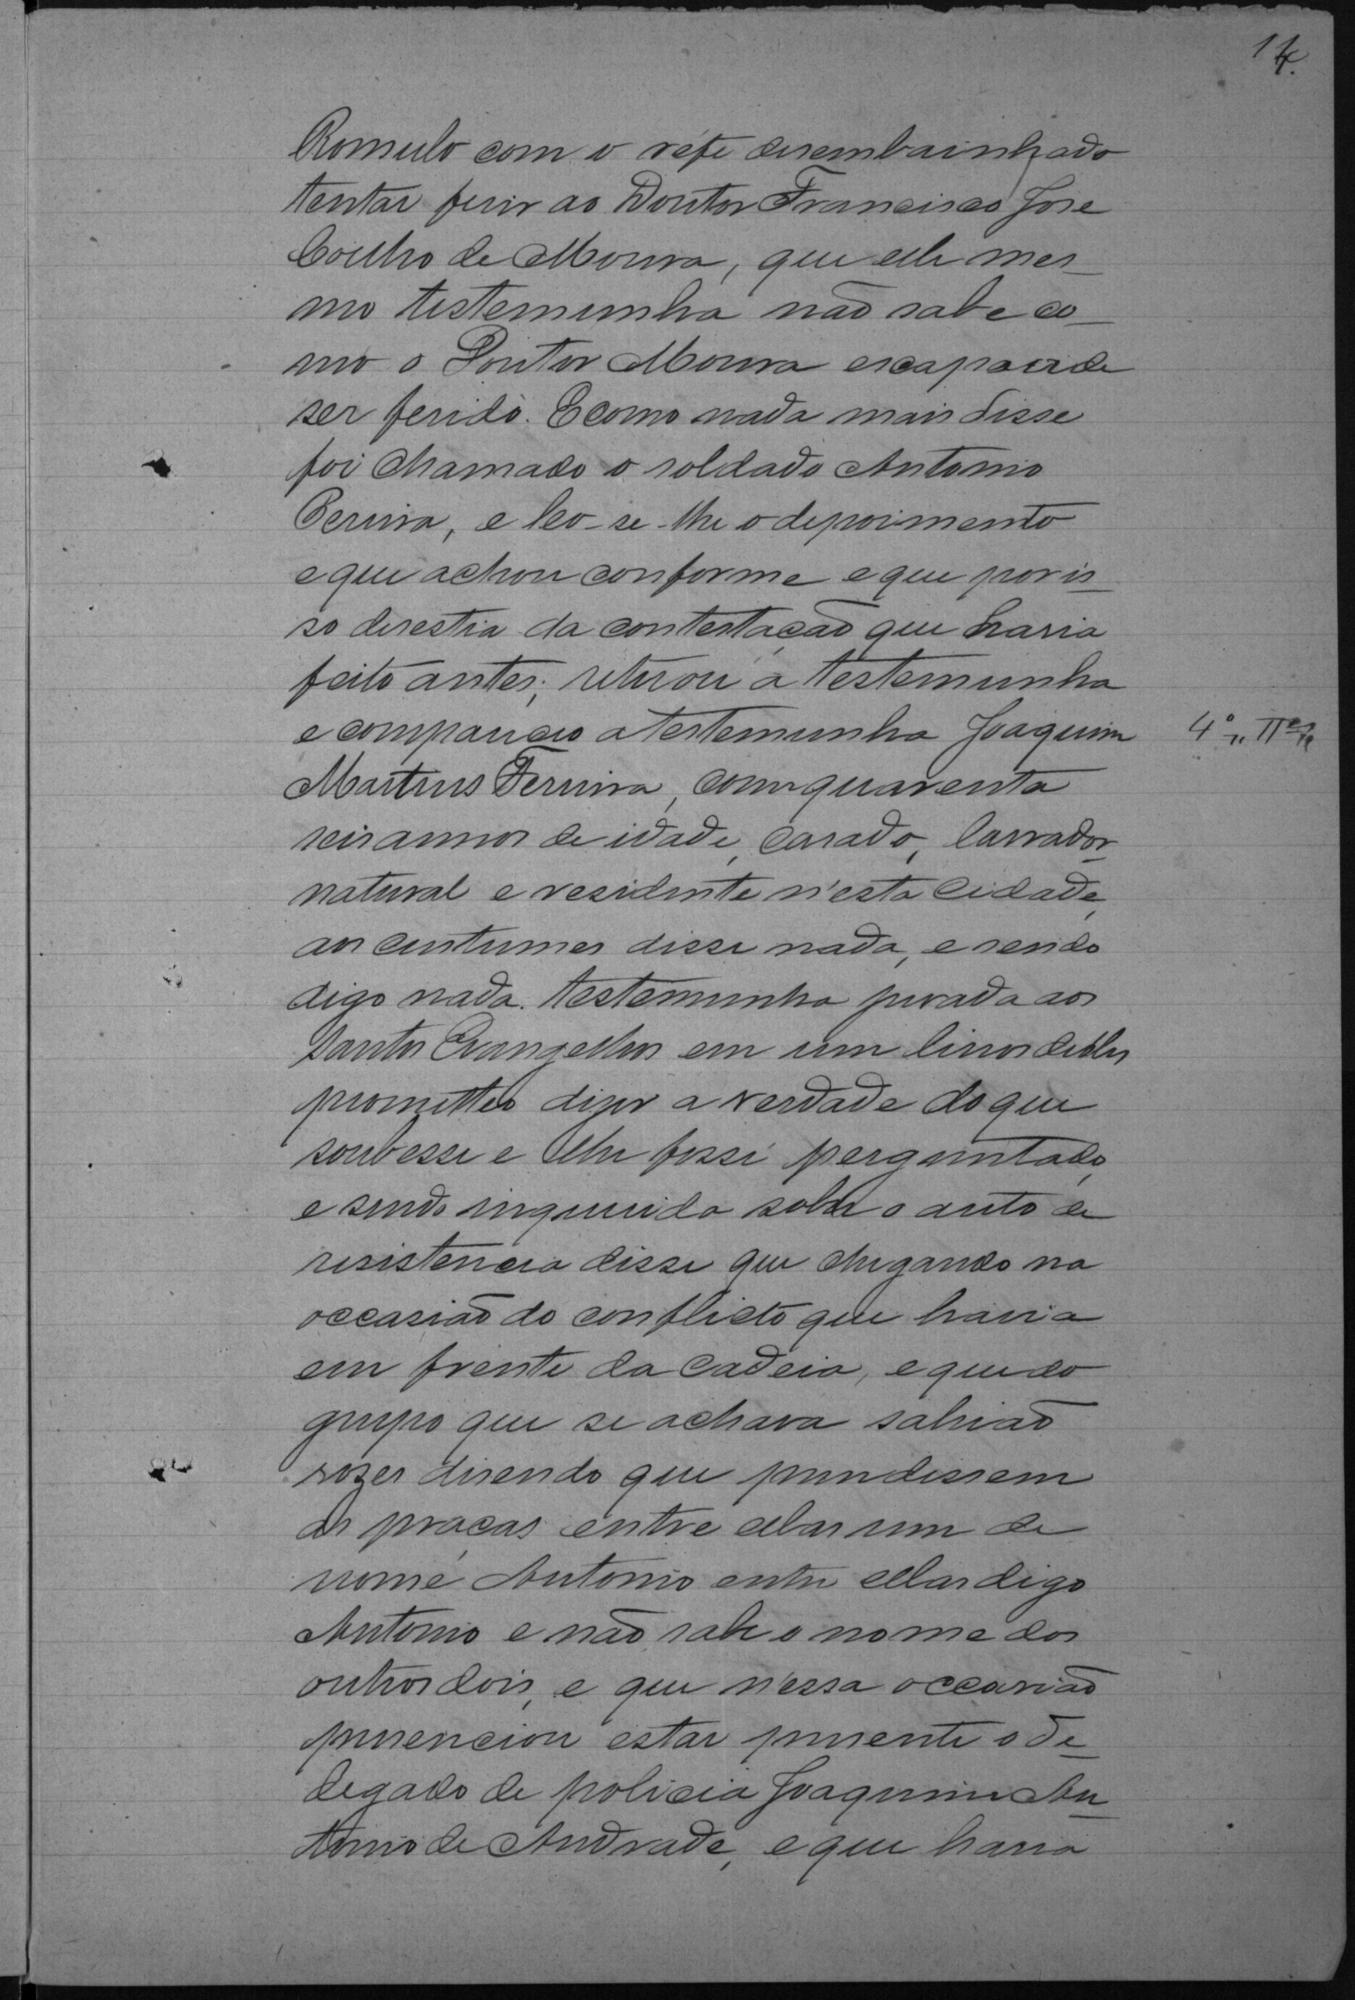 14.
Romulo com o refe desembainhado
tentar ferir ao Doutor Francisco Jose
Coelho de Moura, que elle mes-
mo testemunha não sabe co-
mo o Doutor Moura escapace de
ser ferido. E como nada mais disse
foi chamado o soldado Antonio
Pereira, e leo-se-lhe o depoimento
e que achou conforme e que poris-
so desestia da contestação que havia
feito antes; retirou a testemunha
e compareceo a testemunha Joaquim
4ª Tes
Martins Ferreira, com quarenta
seis annos de idade, casado, lavrador
natural e residente n'esta cidade,
aos custumes disse nada, e sendo
digo nada. testemunha jurada aos
Santos Evangelhos em um livro delles
prometteo dizer a verdade do que
soubesse e lhe fosse perguntado,
e sendo inquerida sobre o auto de
resistencia disse que chegando na
occasião do conflicto que havia
em frente da cadeia, e que do
grupo que se achava sahião
vozes disendo que prendessem
as praças entre ellas um de
nome Antonio entre ellas digo
Antonio e não sabe o nome dos
outros dois, e que n'essa occasião
presenciou estar presente o de-
legado de policia Joaquim An-
tonio de Andrade, e que havia